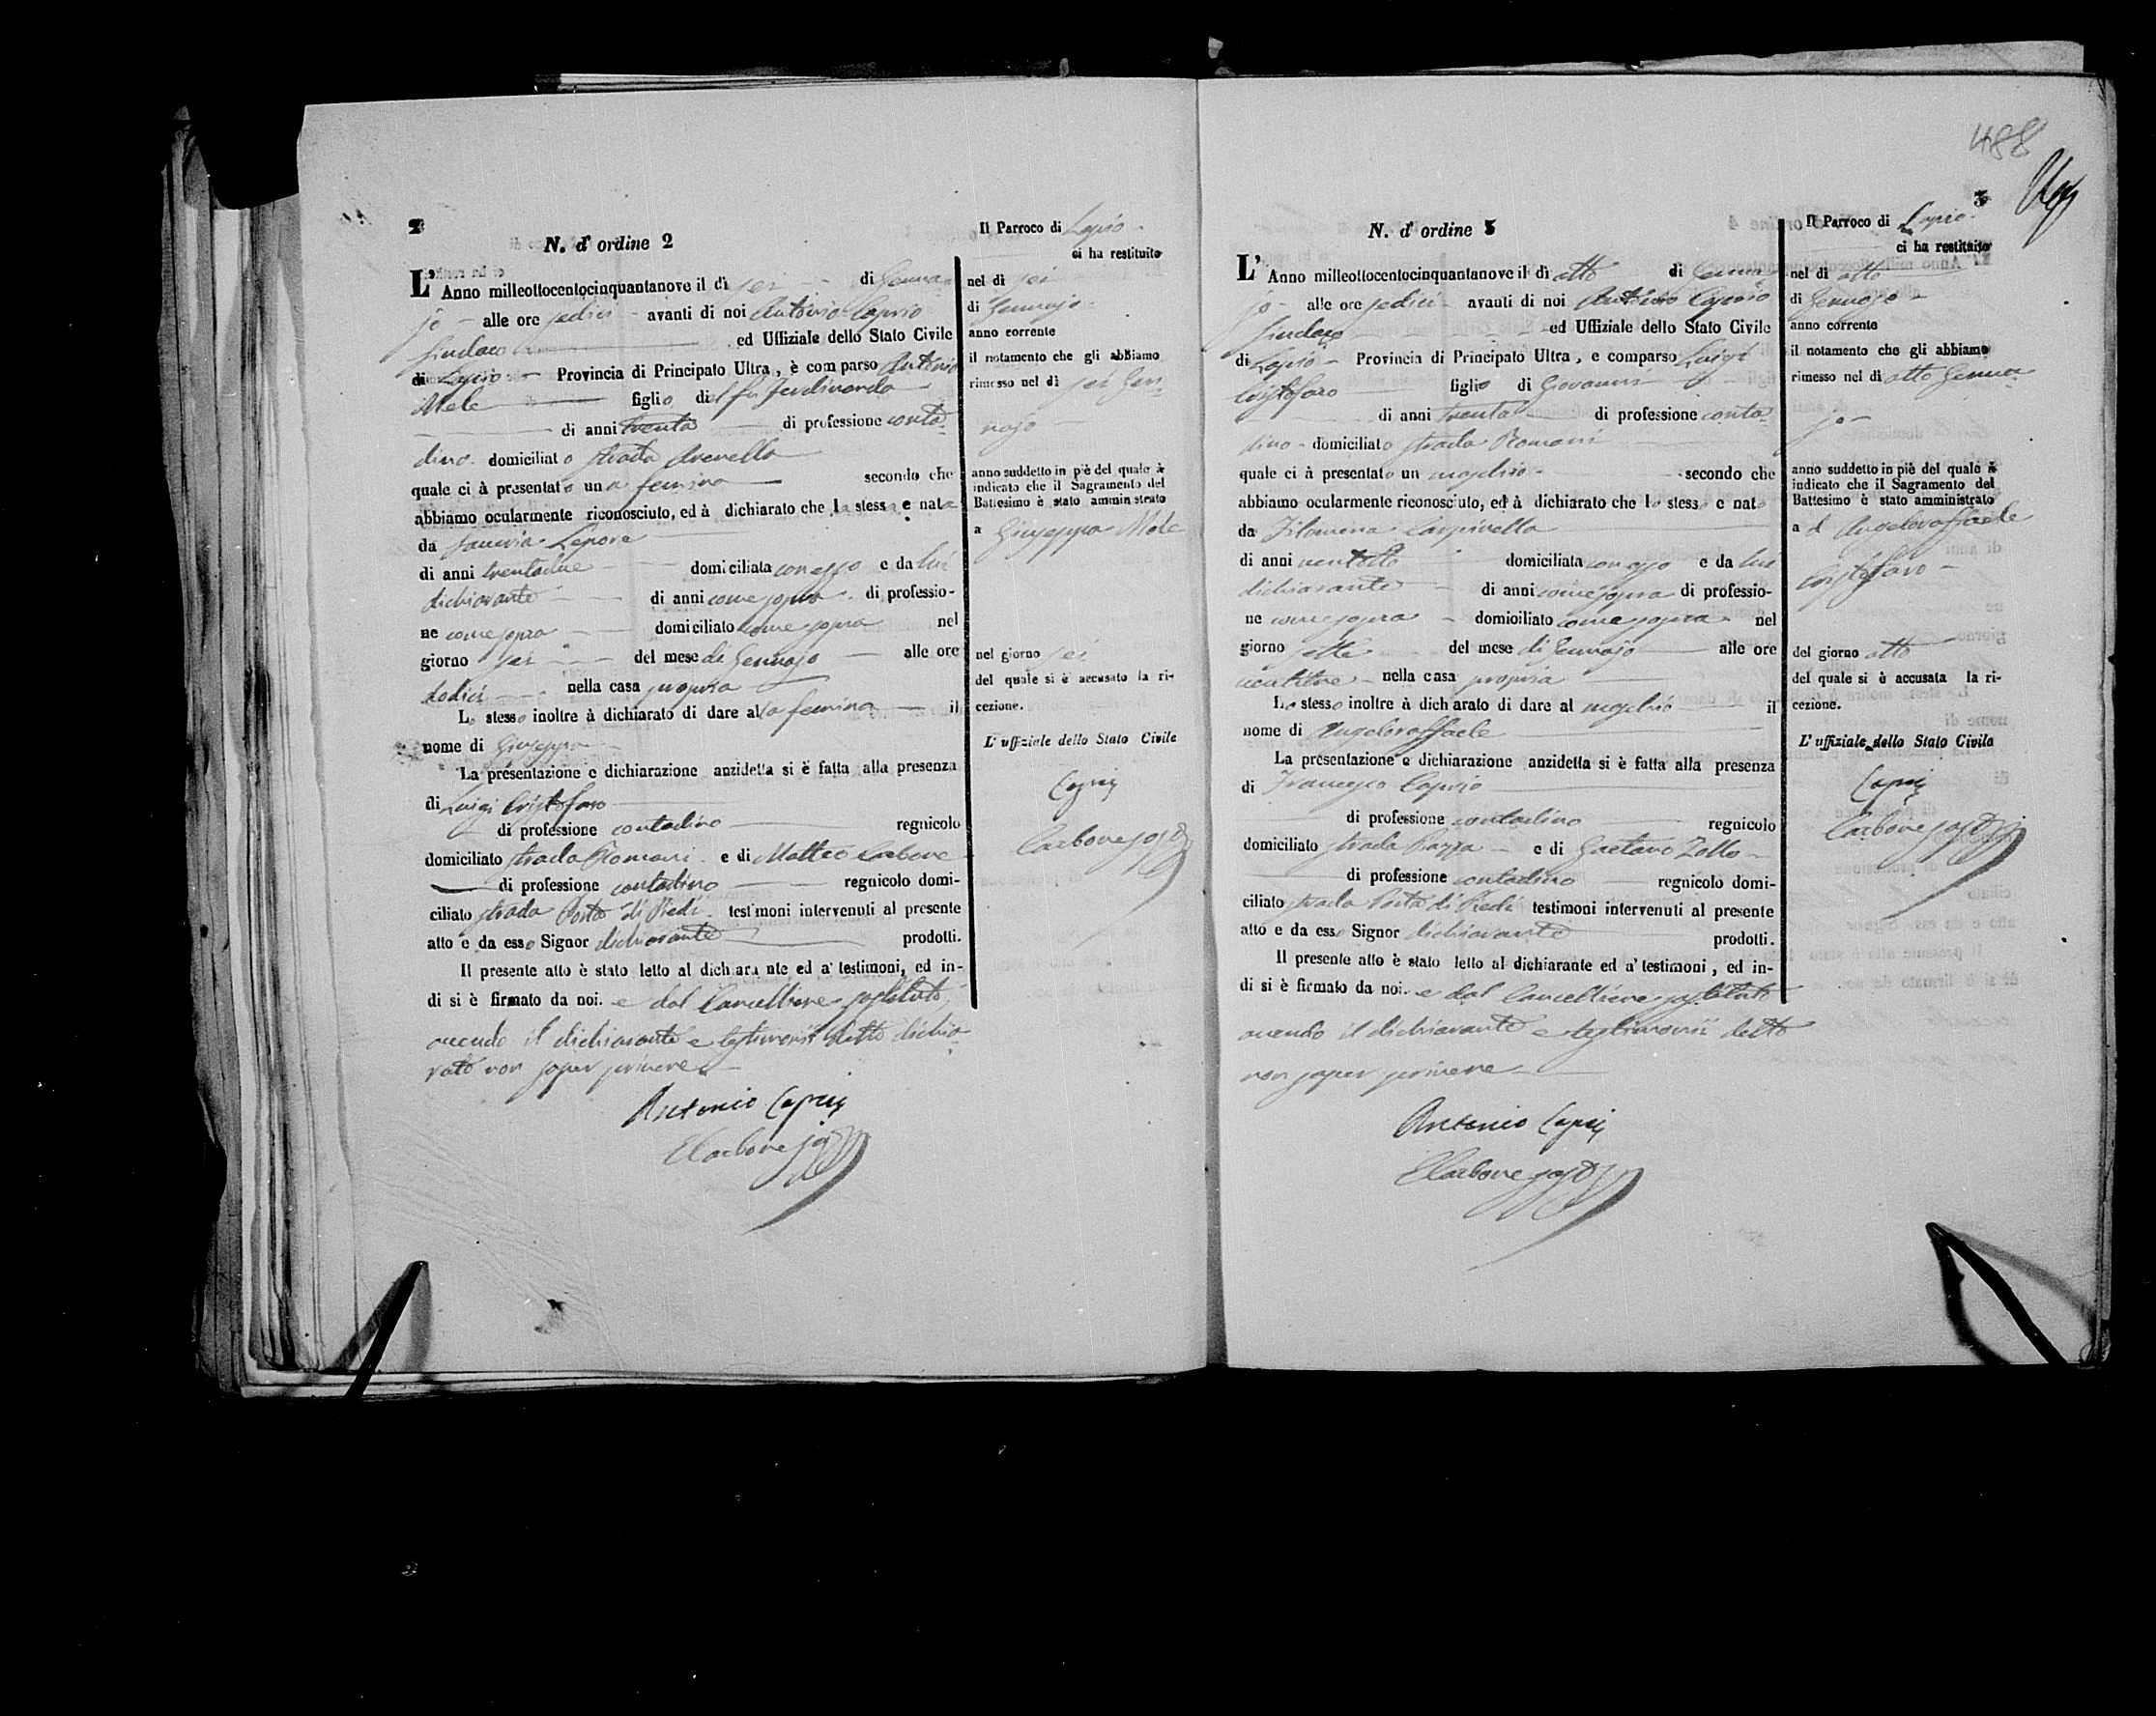 2
N. d' ordine 2
L' Anno milleottocentocinquantanove il dì sei di Genna-
jo alle ore sedici avanti di noi Antonio Caprio
Sindaco ed Uffiziale dello Stato Civile
di Lapio Provincia di Principato Ultra, è comparso Antonio
Mele figlio del fu Ferdinando
di anni trenta di professione conta-
dino domiciliato strada
quale ci à presentato una femina secondo che
abbiamo ocularmente riconosciuto, ed à dichiarato che la stessa e nata
da Lepore
di anni trentadue domiciliata con esso e da lui
dichiarante di anni come sopra di professio-
ne come sopra domiciliato come sopra nel
giorno sei del mese di Gennajo alle ore
dodici nella casa propria
Lo stesso inoltre à dichiarato di dare alla femina il
nome di Giuseppa
La presentazione e dichiarazione anzidetta si è fatta alla presenza
di Luigi Cristofaro
di professione contadino regnicolo
domiciliato strada Romani e di Matteo Carbone
di professione contadino regnicolo domi-
ciliato strada Porta di Piedi testimoni intervenuti al presente
atto e da esso Signor dichiarante prodotti.
Il presente atto è stato letto al dichiarante ed a' testimoni, ed in-
di si è firmato da noi. e dal Cancelliere sostituto
avendo il dichiarante e testimonii detto dichia-
rato non saper scrivere
Antonio Caprio
Carbone
Il Parroco di Lapio
ci ha restituito
nel dì sei
di Gennajo
anno corrente
il notamento che gli abbiamo
rimesso nel dì sei Gen-
najo
anno suddetto in piè del quale à
indicato che il Sagramento del
Battesimo è stato amministrato
a Giuseppa Mele
nel giorno sei
del quale si è accusato la ri-
cezione.
L' uffiziale dello Stato Civile
Caprio
Carbone sost
488
3
N. d' ordine 3
L' Anno milleottocentocinquantanove il dì otto di Genna
jo alle ore sedici avanti di noi Antonio Caprio
Sindaco ed Uffiziale dello Stato Civile
di Lapio Provincia di Principato Ultra, e comparso Luigi
Cristofaro figlio di Giovanni
di anni trenta di professione conta-
dino domiciliato strada Romani
quale ci à presentato un maschio secondo che
abbiamo ocularmente riconosciuto, ed à dichiarato che lo stesso e nato
da Filomena Carpinella
di anni ventotto domiciliata con esso e da lui
dichiarante di anni come sopra di professio-
ne come sopra domiciliato come sopra nel
giorno sette del mese di Gennajo alle ore
ventitre nella casa propria
Lo stesso inoltre à dichiarato di dare al maschio il
nome di Angeloraffaele
La presentazione e dichiarazione anzidetta si è fatta alla presenza
di Francesco Caprio
di professione contadino regnicolo
domiciliato strada Piazza e di Gaetano Zollo
di professione contadino regnicolo domi-
ciliato strada Porta di Piedi testimoni intervenuti al presente
atto e da esso Signor dichiarante prodotti.
Il presente atto è stato letto al dichiarante ed a' testimoni, ed in-
di si è firmato da noi. e dal Cancelliere sostituto
avendo il dichiarante e testimonii detto
non saper scrivere
Antonio Caprio
Carbone sost
Il Parroco di Lapio
ci ha restituito
nel dì otto
di Gennajo
anno corrente
il notamento che gli abbiamo
rimesso nel dì otto Genna
jo
anno suddetto in piè del quale à
indicato che il Sagramento del
Battesimo è stato amministrato
ad Angeloraffaele
Cristofaro
del giorno otto
del quale si è accusata la ri-
cezione.
L' uffiziale dello Stato Civile
Caprio
Carbone sost